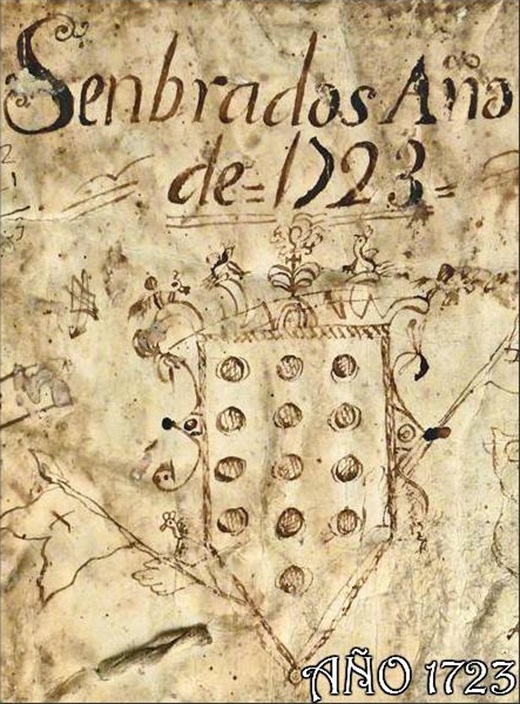 Senbrados Año
de=1723=
AÑO 1723